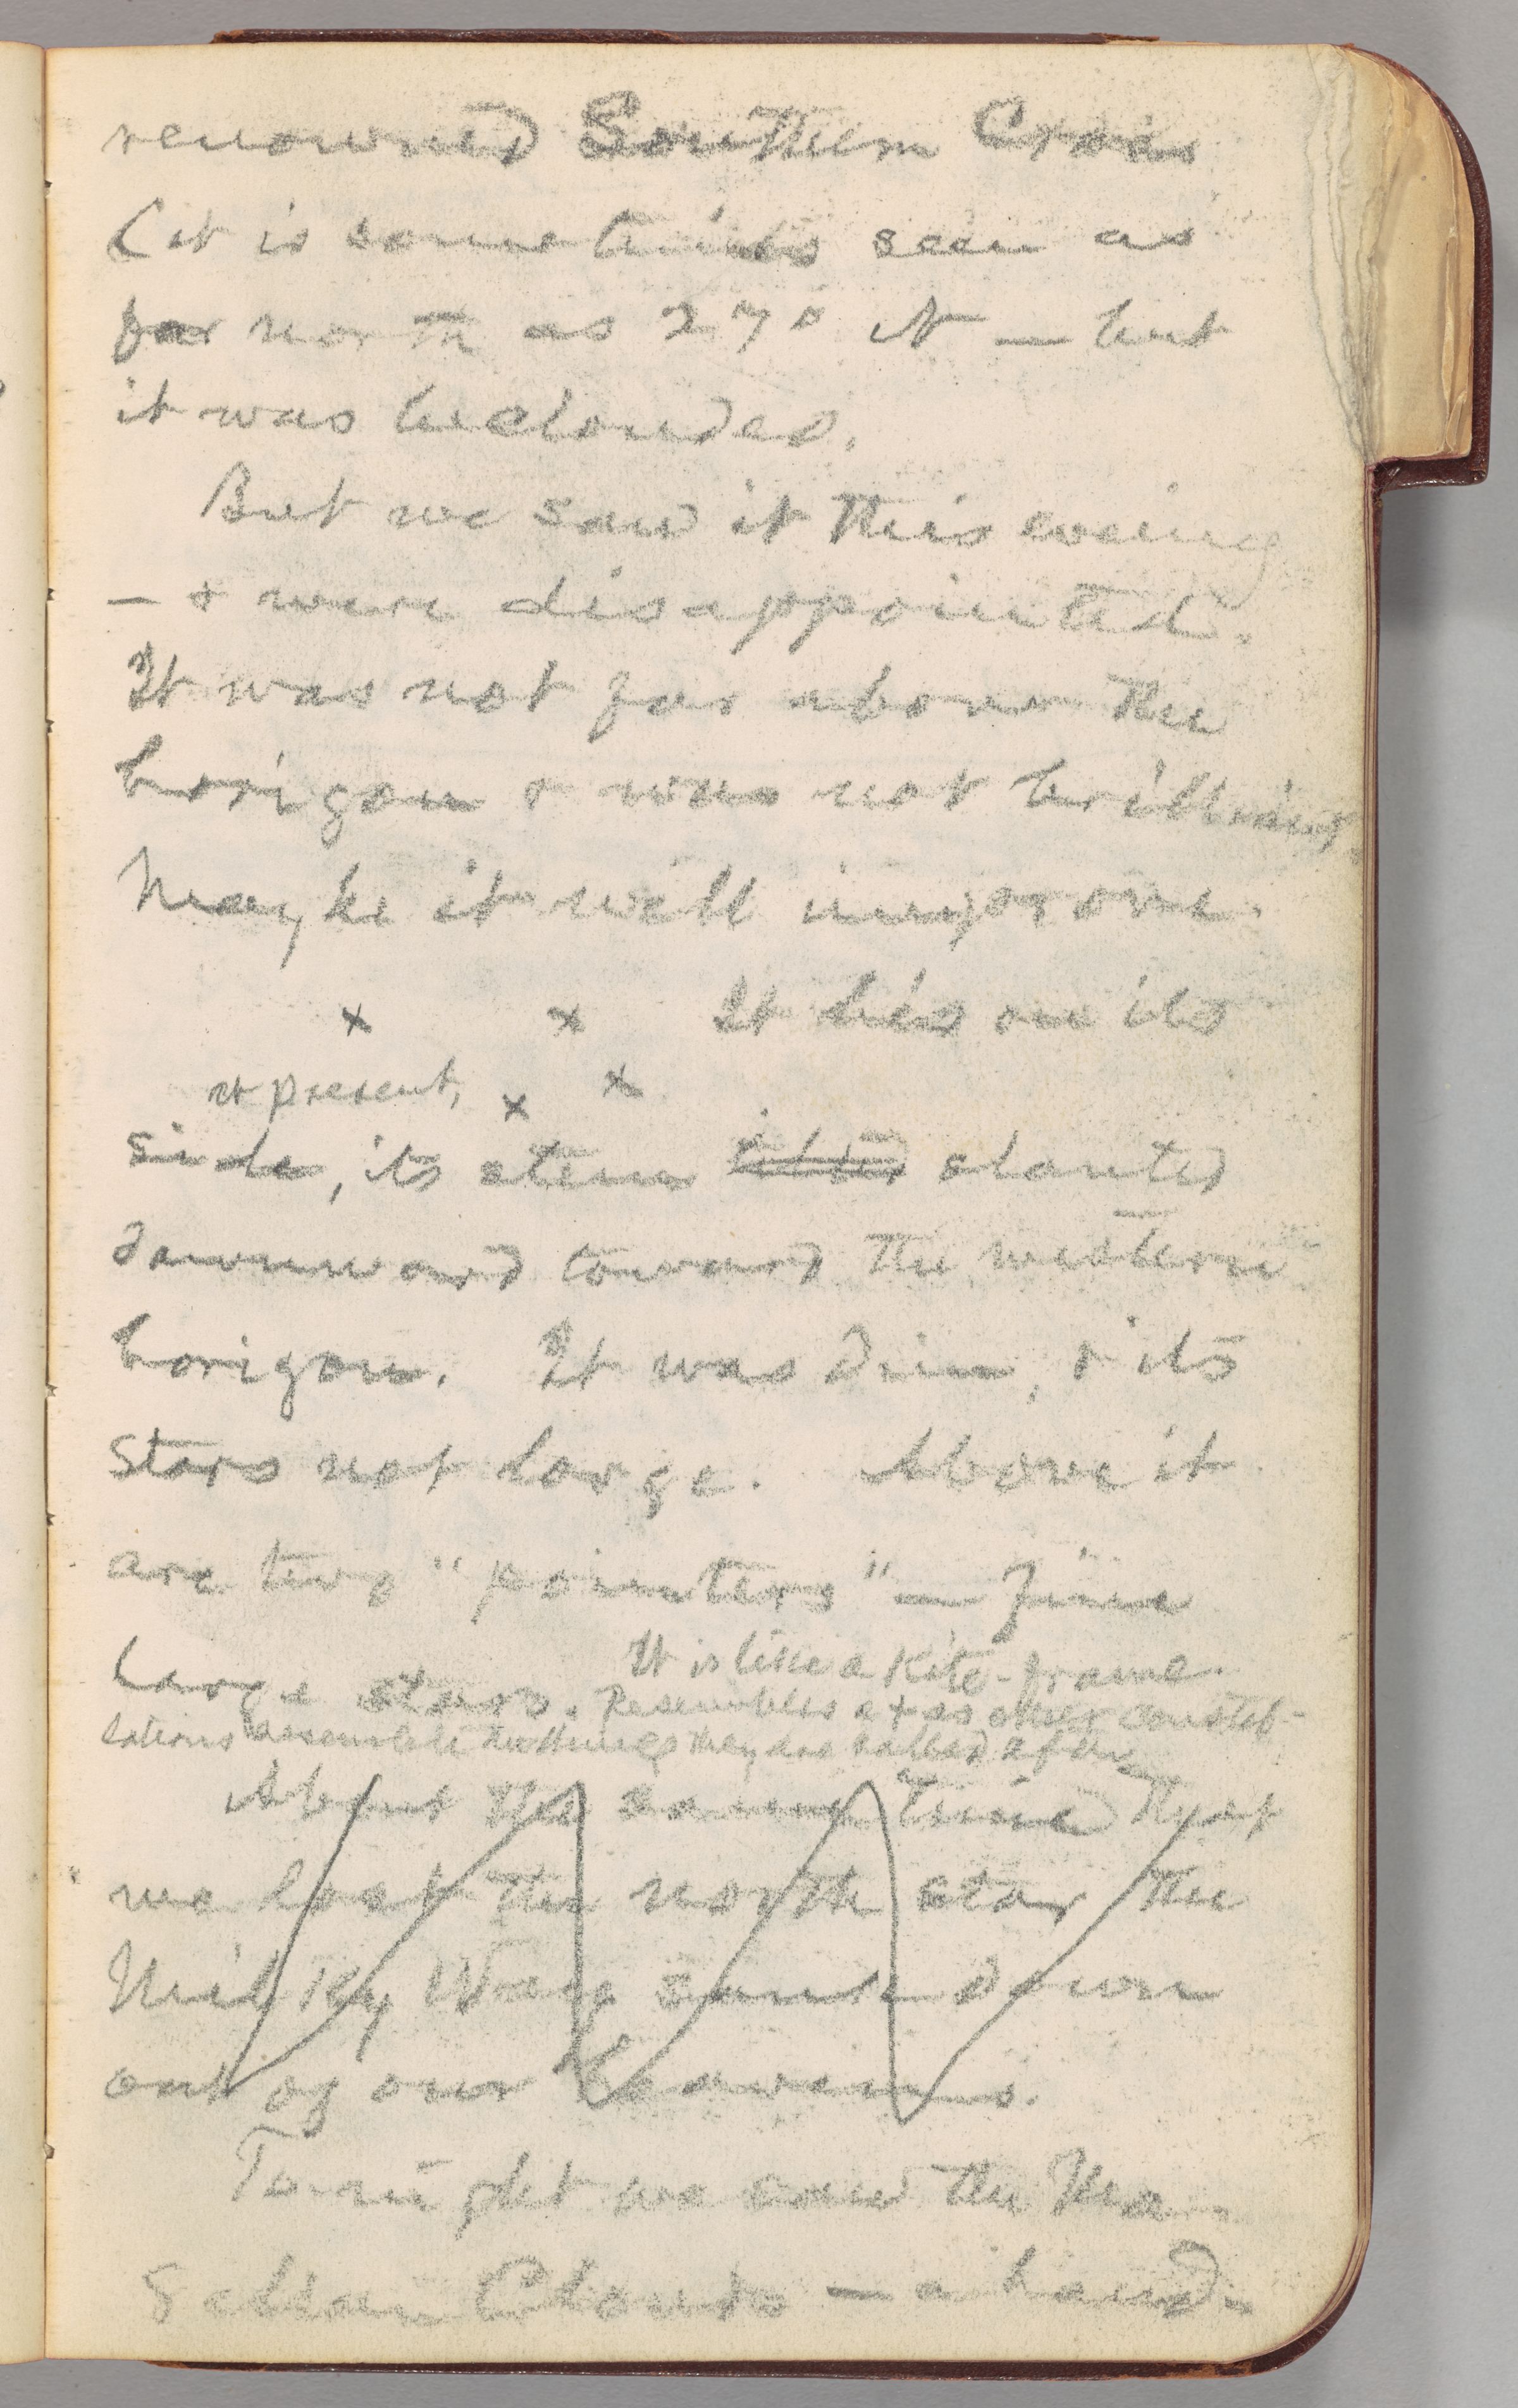 renowned Southern Cross
(it is sometimes seen as
far north as 27° N — but
it was beclouded.
But we saw it this evening
— & were disappointed.
It was not far above the
horizon & was not brilliant.
Maybe it will improve.
x x It lies on its
at present, x x
side, its stem tilted slanted
downward toward the western
horizon. It was dim, & its
stars not large. Above it
are two "pointers" — fine
large stars. It is like a kite-frame.
Resembles a + as other constel-
lations resemble the things they are called after.
About the same time that
we lost the north star the
Milky Way sunk down
out of our heavens.
To-night we saw the Ma-
gellan Clouds — a hand-